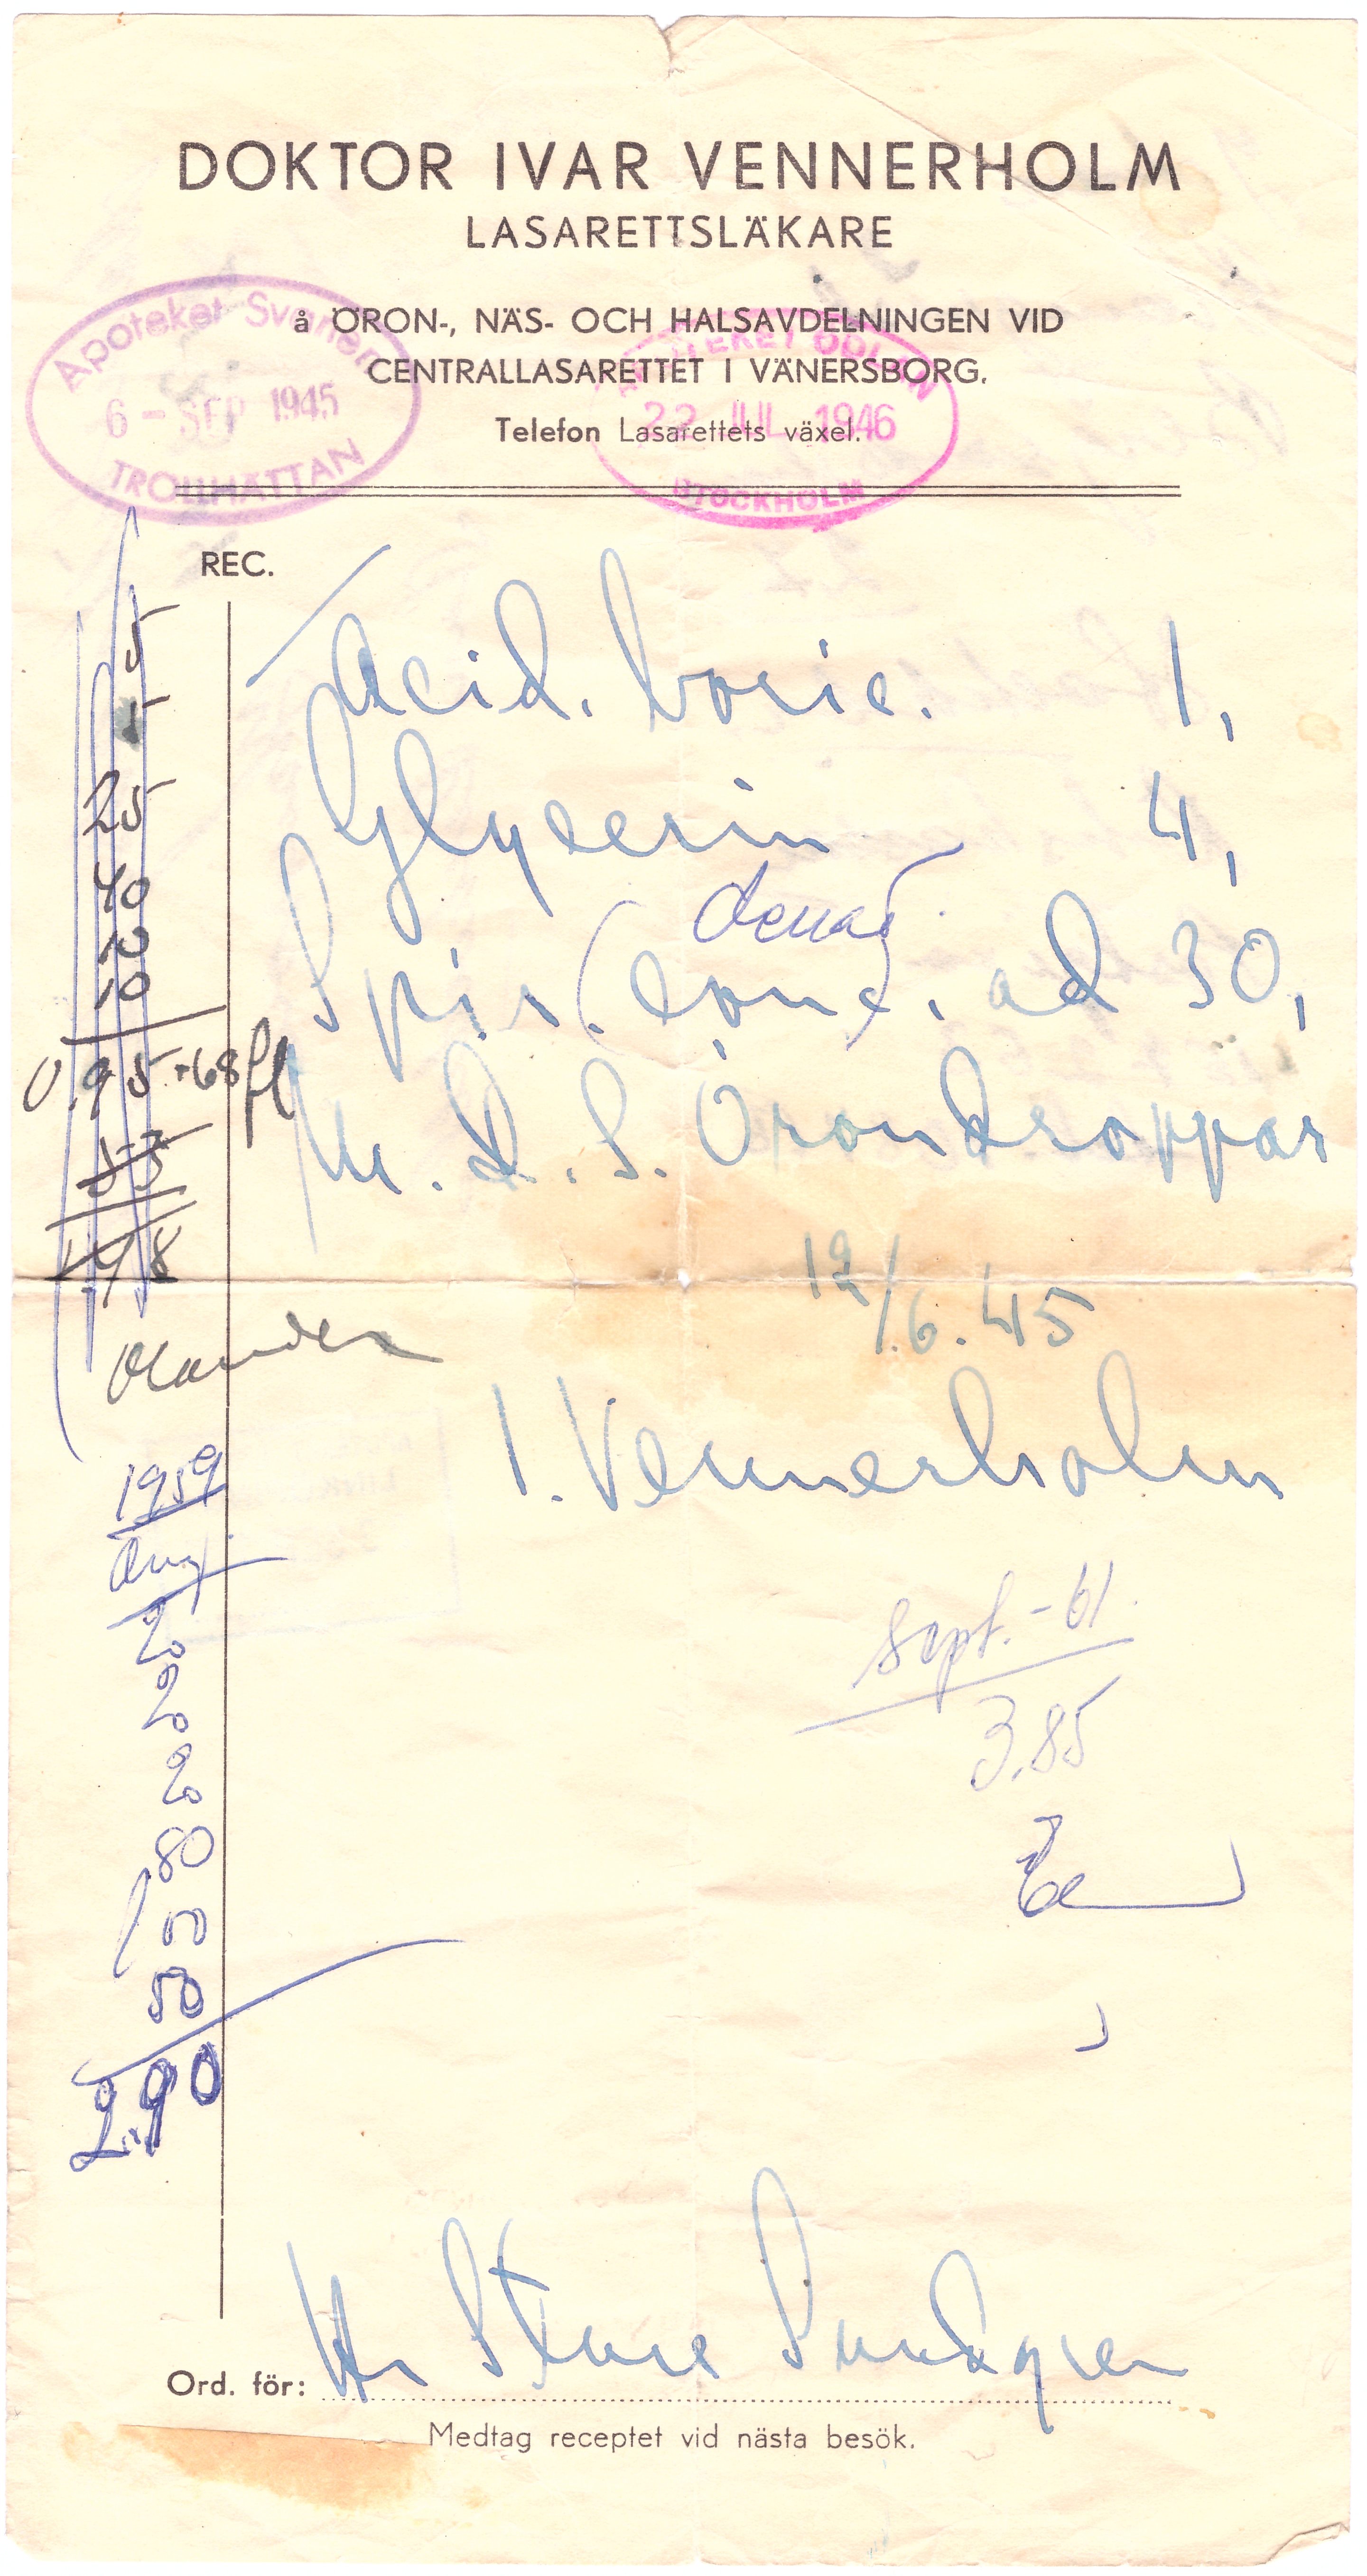 DOKTOR IVAR VENNERHOLM
LASARETTSLÄKARE
å ÖRON-, NÄS- OCH HALSAVDELNINGEN VID
CENTRALLASARETTET I VÄNERSBORG.
Telefon Lasarettets växel.
Apoteket Svanen
6 - SEP 1945
TROLLHÄTTAN
22 JUL 1946
STOCKHOLM
REC.
Acid. boric. 1,
Glycerin 4,
denat.
Spir. (conc). ad 30,
M. D. S. Örondroppar
12/6.45
I. Vennerholm
5
5
25
40
10
10
0.95+68 fl
53
1.48
1959
Aug.
20
20
20
80
50
2.90
sept. - 61.
3.85
Ord. för: Hr Sture Sundgren
Medtag receptet vid nästa besök.